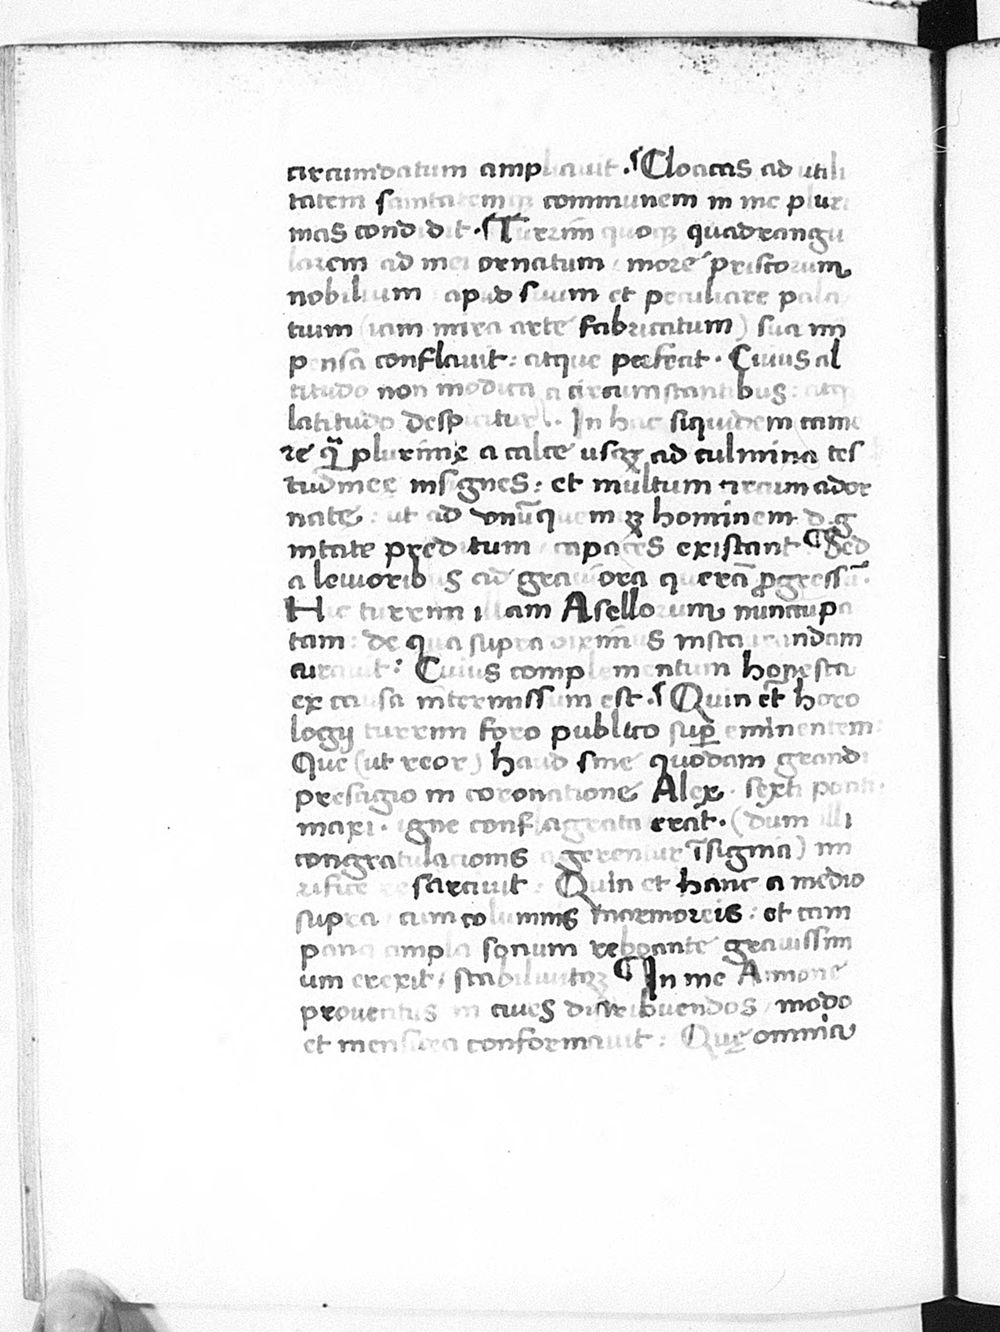 circumdatum ampliauit. ¶Cloacas ad utili
tatem sanitatemqꝫ communem in me pluri
mas condidit. ¶Turrim quoqꝫ quadrangu
larem ad mei ornatum / more priscorum
nobilium apud suum et peculiare pala
tium (iam mira arte fabricatum) sua im
pensa conflauit: atque perfecit. Cuius al
titudo non modica a circumstantibus: atqꝫ
latitudo despicitur. In hac siquidem came
re qᷓ plurime a calce usqꝫ ad culmina tes
tudinee insignes: et multum circum ador
nate: ut ad vnūquemqꝫ hominem dig
nitate preditum / capaces existant ¶Sed
a leuioribus ad grauiora querā ꝓgressū.
Hic turrim illam Asellorum nuncupa
tam: de qua supra diximus instaurandam
curauit: Cuius complementum honesta
ex causa intermissum est. ¶Quin et horo
logij turrim foro publico suꝑ eminentem:
Que (ut reor) haud sine quodam grandi
presagio in coronatione Alex. sexti ponti
maxi. igne conflagrata erat. (dum illi
congratulacionis agerentur īsignia) mi
rifice resarciuit. Quin et hanc a medio
supra / cum columnis marmoreis: et cam
pana ampla sonum reboante grauissim
um erexit / stabiliuitqꝫ ¶In me Annone
prouentus in ciues distribuendos / modo
et mensura conformauit: Quę omnia